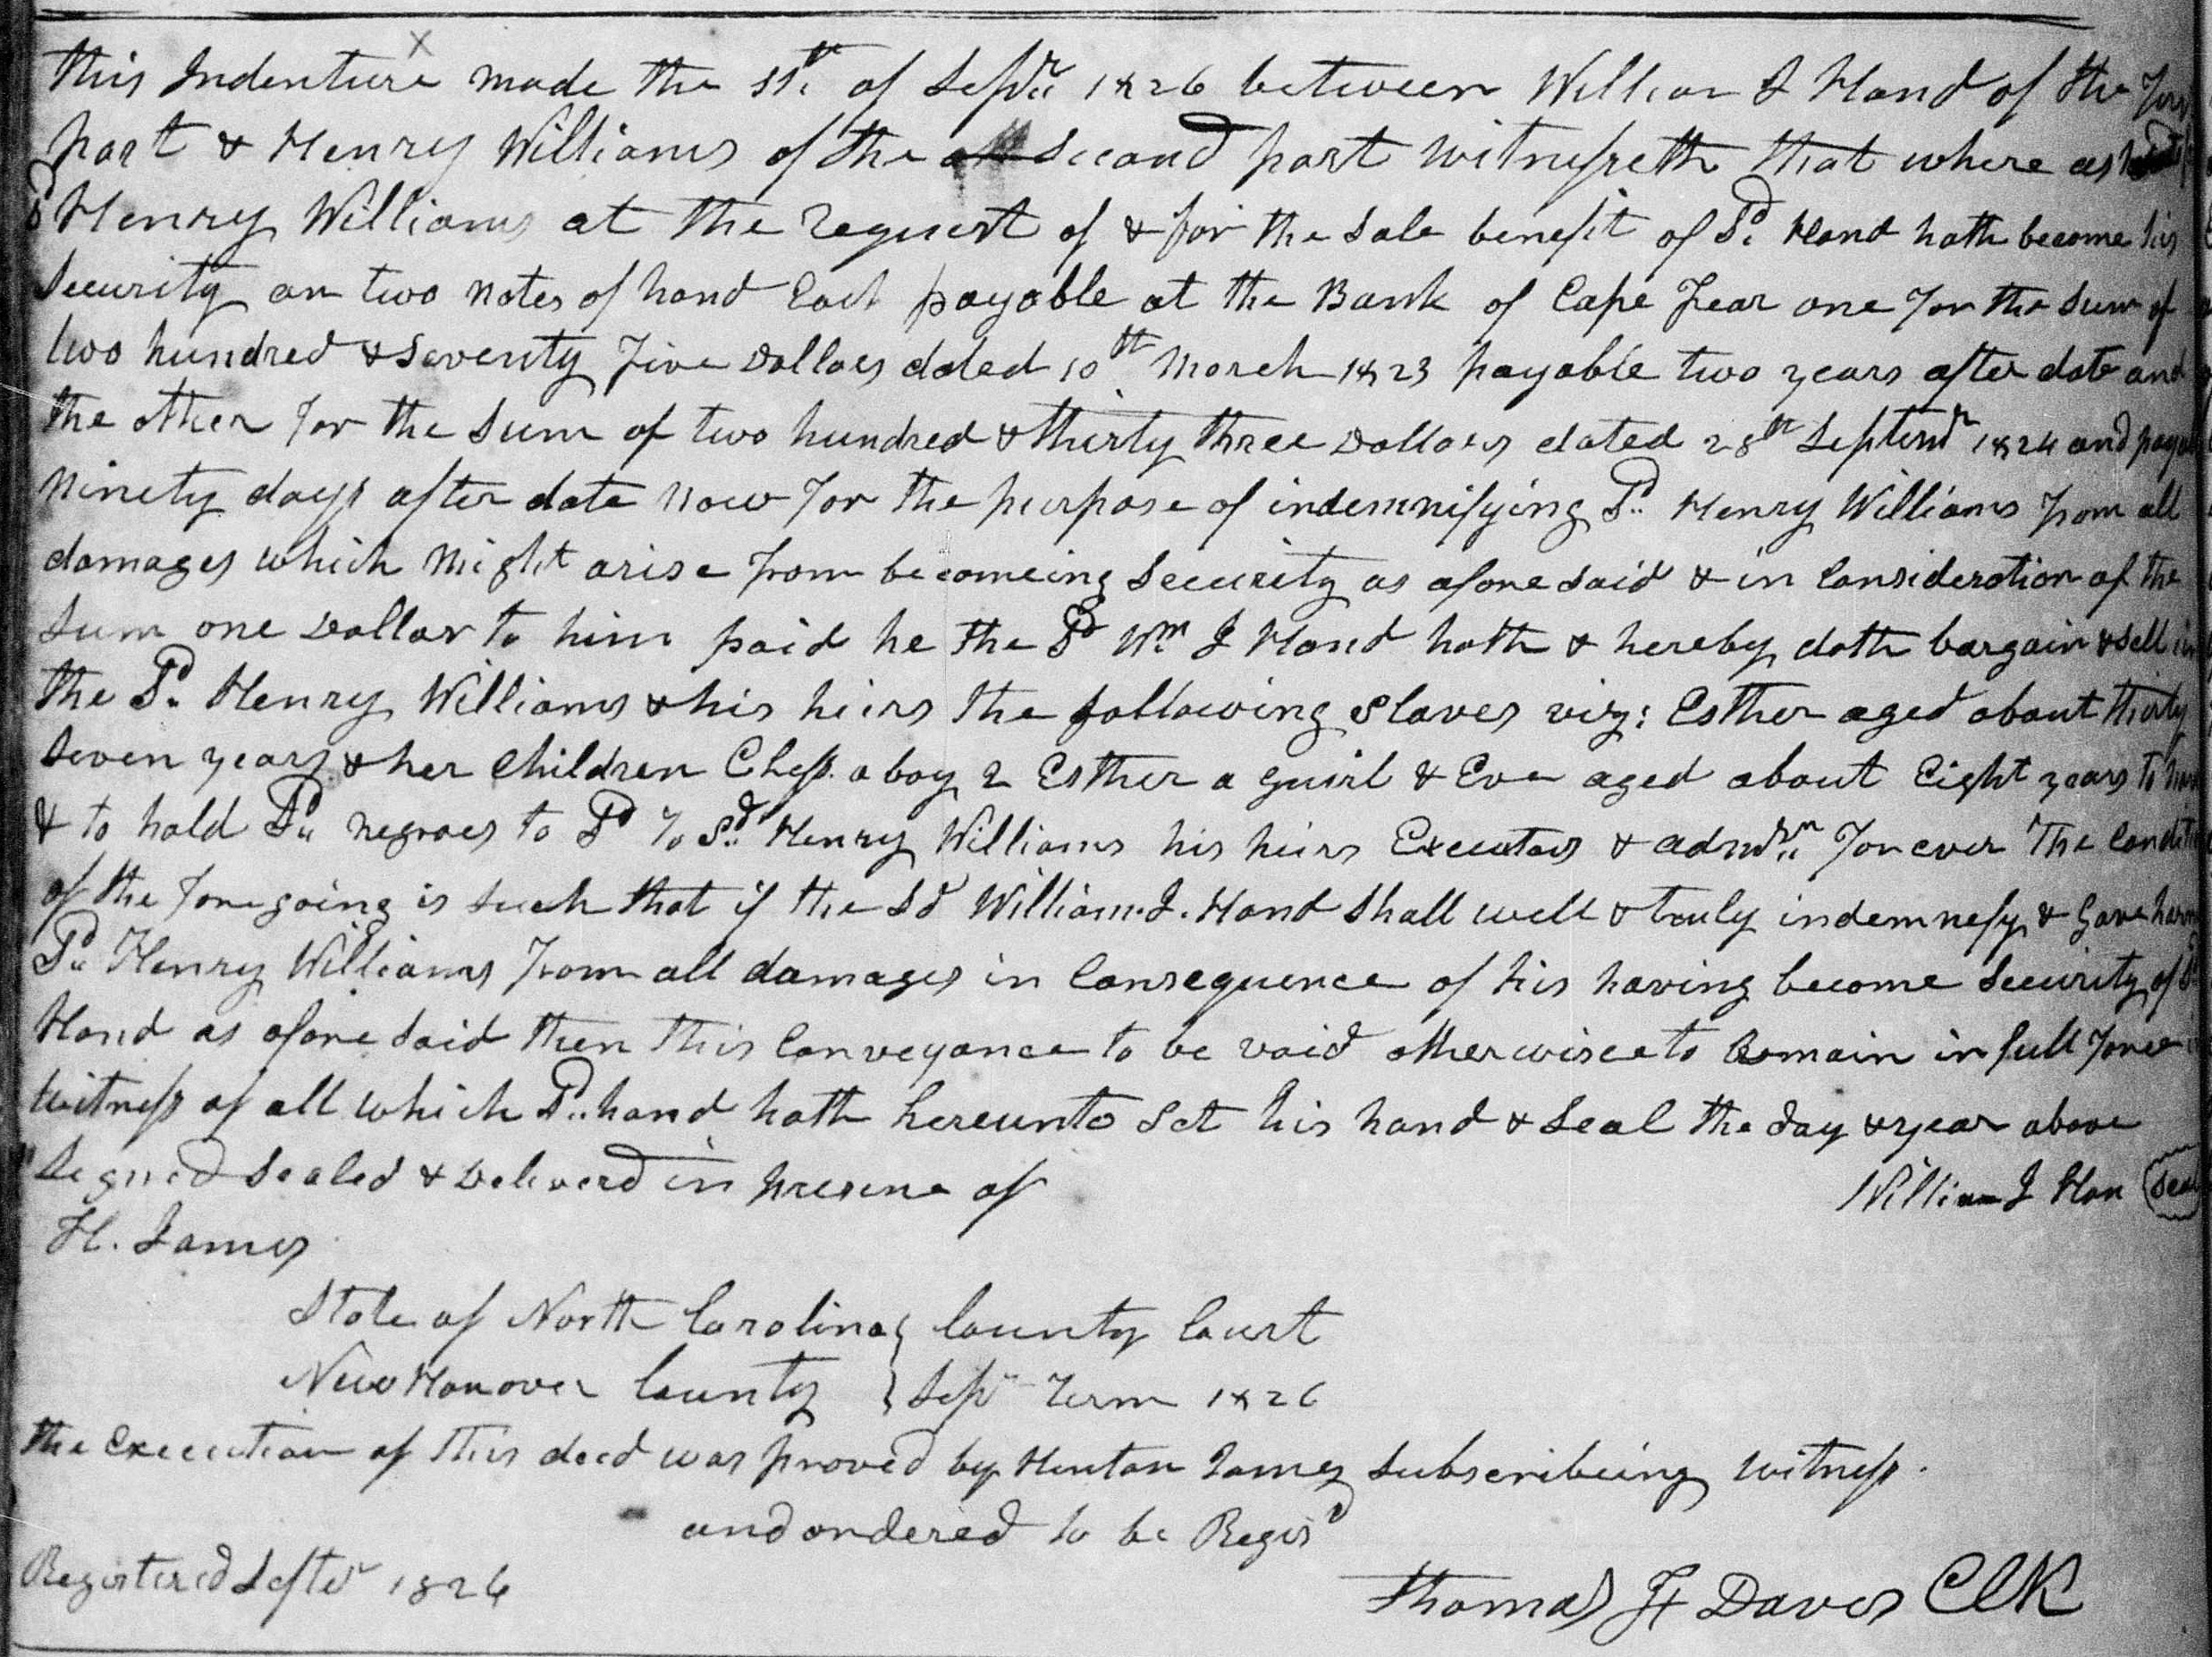 This Indenture made the 11th of Septr 1826 between William J Hand of the
part & Henry Williams of the second part witnesseth that where as
sd Henry Williams at the request of & for the sole benefit of Sd Hand hath become his
security on two notes of hand Each payable at the Bank of Cape Fear one for the sum of
two hundred & seventy five Dollars dated 10th March 1823 payable two years after date and
the other for the sum of two hundred & thirty three Dollars dated 28th Septemr 1824 and
ninety days after date now for the purpose of indemnifying Sd Henry Williams from all
damages which might arise from becomeing security as afore said & in Consideration of the
sum one Dollar to him paid he the Sd Wm J Hand hath & hereby doth bargain & sell
the Sd Henry Williams & his hiers the following slaves viz: Esther aged about thirty
seven years & her Children Chess a boy & Esther a guirl & Eve aged about Eight years to
& to hold Sd negroes to Sd To Sd Henry Williams his heirs Executors & admrs Forever The
of the foregoing is such that if the Sd William J. Hand shall well & truly indemnefy & Save
Sd Henry Williams from all damages in Consequence of his having become security of
Hand as afore said then this Conveyance to be void otherwise to Remain in full force
witness of all which Sd hand hath hereunto set his hand & seal the day & year above
Signed sealed & Deliverd in presene of
William J Han
H. James
State of North Carolina } County Court
New Hanover County } Sepr Term 1826
The Execution of this deed was proved by Hinton James subscribeing witness.
and ordered to be Regisd
Registered Septer 1826
Thomas F Davis Clk